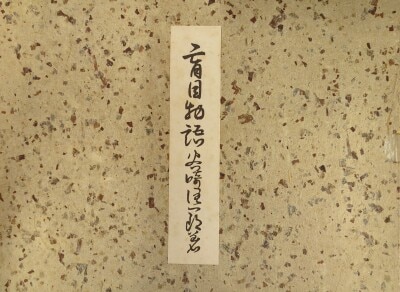 盲目物語 谷崎潤一郎著